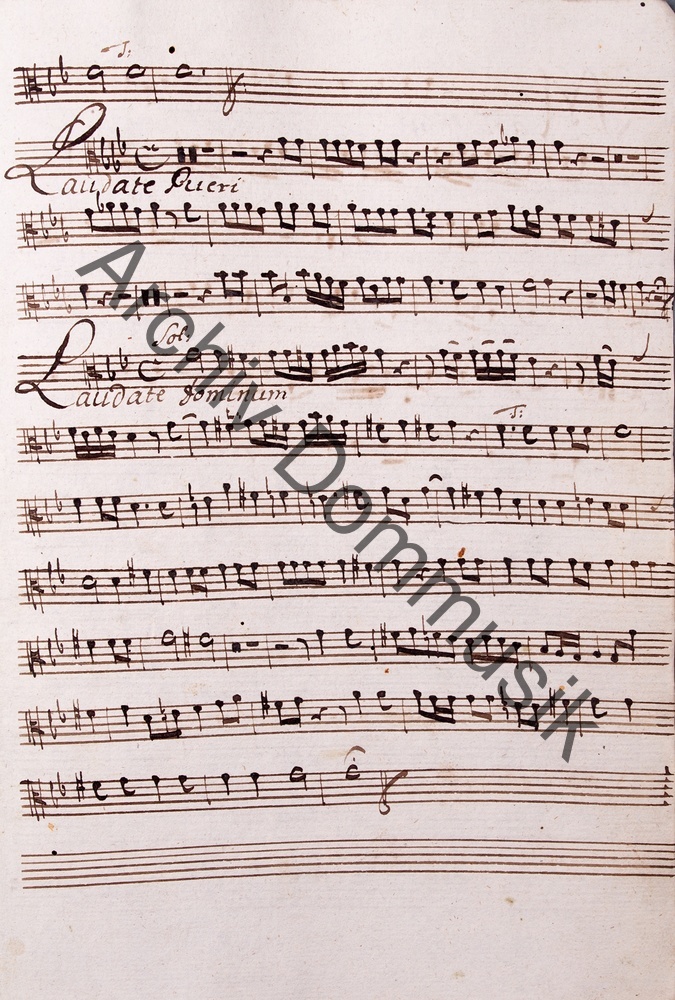 T:
Laudate Pueri
Sol:
Laudate dominum
T:
Archiv Dommusik